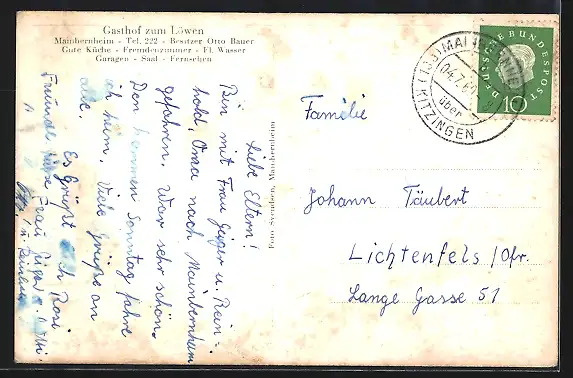 Gasthof zum Löwen
Mainbernheim - Tel. 222 - Besitzer Otto Bauer
Gute Küche - Fremdenzimmer - Fl. Wasser
Garagen - Saal - Fernsehen
Liebe Eltern!
Bin mit Frau Geiger u. Rein-
hold, Oma nach Mainbernheim
gefahren. War sehr schön.
Den Sonntag fahre
ich heim. Viele Grüße an
alle.
Es Grüßt Euch Rosi
Freundl. Grüße Frau
Mainbernheim
DEUTSCHE BUNDESPOST
10
MAINBERNHEIM
über
KITZINGEN
Familie
Johann Täubert
Lichtenfels/Ofr.
Lange Gasse 51